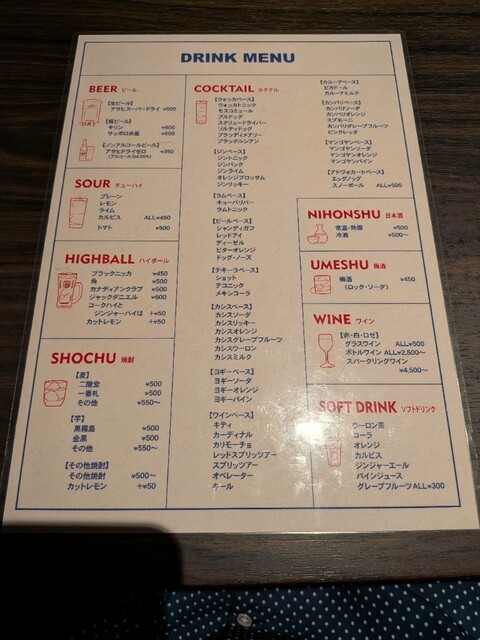 DRINK MENU
BEER ビール
【生ビール】
アサヒスーパードライ ¥500
【瓶ビール】
キリン ¥600
サッポロ赤星 ¥600
【ノンアルコールビール】
アサヒドライゼロ ¥350
(アルコール分0.00%)
SOUR チューハイ
プレーン
レモン
ライム
カルピス ALL¥450
トマト ¥500
HIGHBALL ハイボール
ブラックニッカ ¥450
角 ¥500
カナディアンクラブ ¥500
ジャックダニエル ¥600
コークハイと
ジンジャーハイは +¥50
カットレモン +¥50
SHOCHU 焼酎
【麦】
二階堂 ¥500
一番札 ¥500
その他 ¥550〜
【芋】
黒霧島 ¥500
金黒 ¥500
その他 ¥550〜
【その他焼酎】
その他焼酎 ¥500〜
カットレモン +¥50
COCKTAIL カクテル
【ウォッカベース】
ウォッカトニック
モスコミュール
ブルドッグ
スクリュードライバー
ソルティドッグ
ブラッディメアリー
ブラックルシアン
【ジンベース】
ジントニック
ジンバック
ジンライム
オレンジブロッサム
ジンリッキー
【ラムベース】
キューバリバー
ラムトニック
【ビールベース】
シャンディガフ
レッドアイ
ディーゼル
ビターオレンジ
ドッグ・ノーズ
【テキーラベース】
ショット
テコニック
メキシコーラ
【カシスベース】
カシスソーダ
カシスリッキー
カシスオレンジ
カシスグレープフルーツ
カシスウーロン
カシスミルク
【ヨギーベース】
ヨギーソーダ
ヨギーオレンジ
ヨギーパイン
【ワインベース】
キティ
カーディナル
カリモーチョ
レッドスプリッツアー
スプリッツアー
オペレーター
キール
【カルーアベース】
ピカドール
カルーアミルク
【カンパリベース】
カンパリソーダ
カンパリオレンジ
スプモーニ
カンパリグレープフルーツ
ピンクレッタ
【マンゴヤンベース】
マンゴヤンソーダ
マンゴヤンオレンジ
マンゴヤンパイン
【アドヴォカートベース】
エッグノッグ
スノーボール ALL¥500
NIHONSHU 日本酒
常温・熱燗 ¥500
冷酒 ¥500〜
UMESHU 梅酒
梅酒 ¥450
(ロック・ソーダ)
WINE ワイン
【赤・白・ロゼ】
グラスワイン ALL¥500
ボトルワイン ALL¥2,500〜
スパークリングワイン
¥4,500〜
SOFT DRINK ソフトドリンク
ウーロン茶
コーラ
オレンジ
カルピス
ジンジャーエール
パインジュース
グレープフルーツ ALL¥300